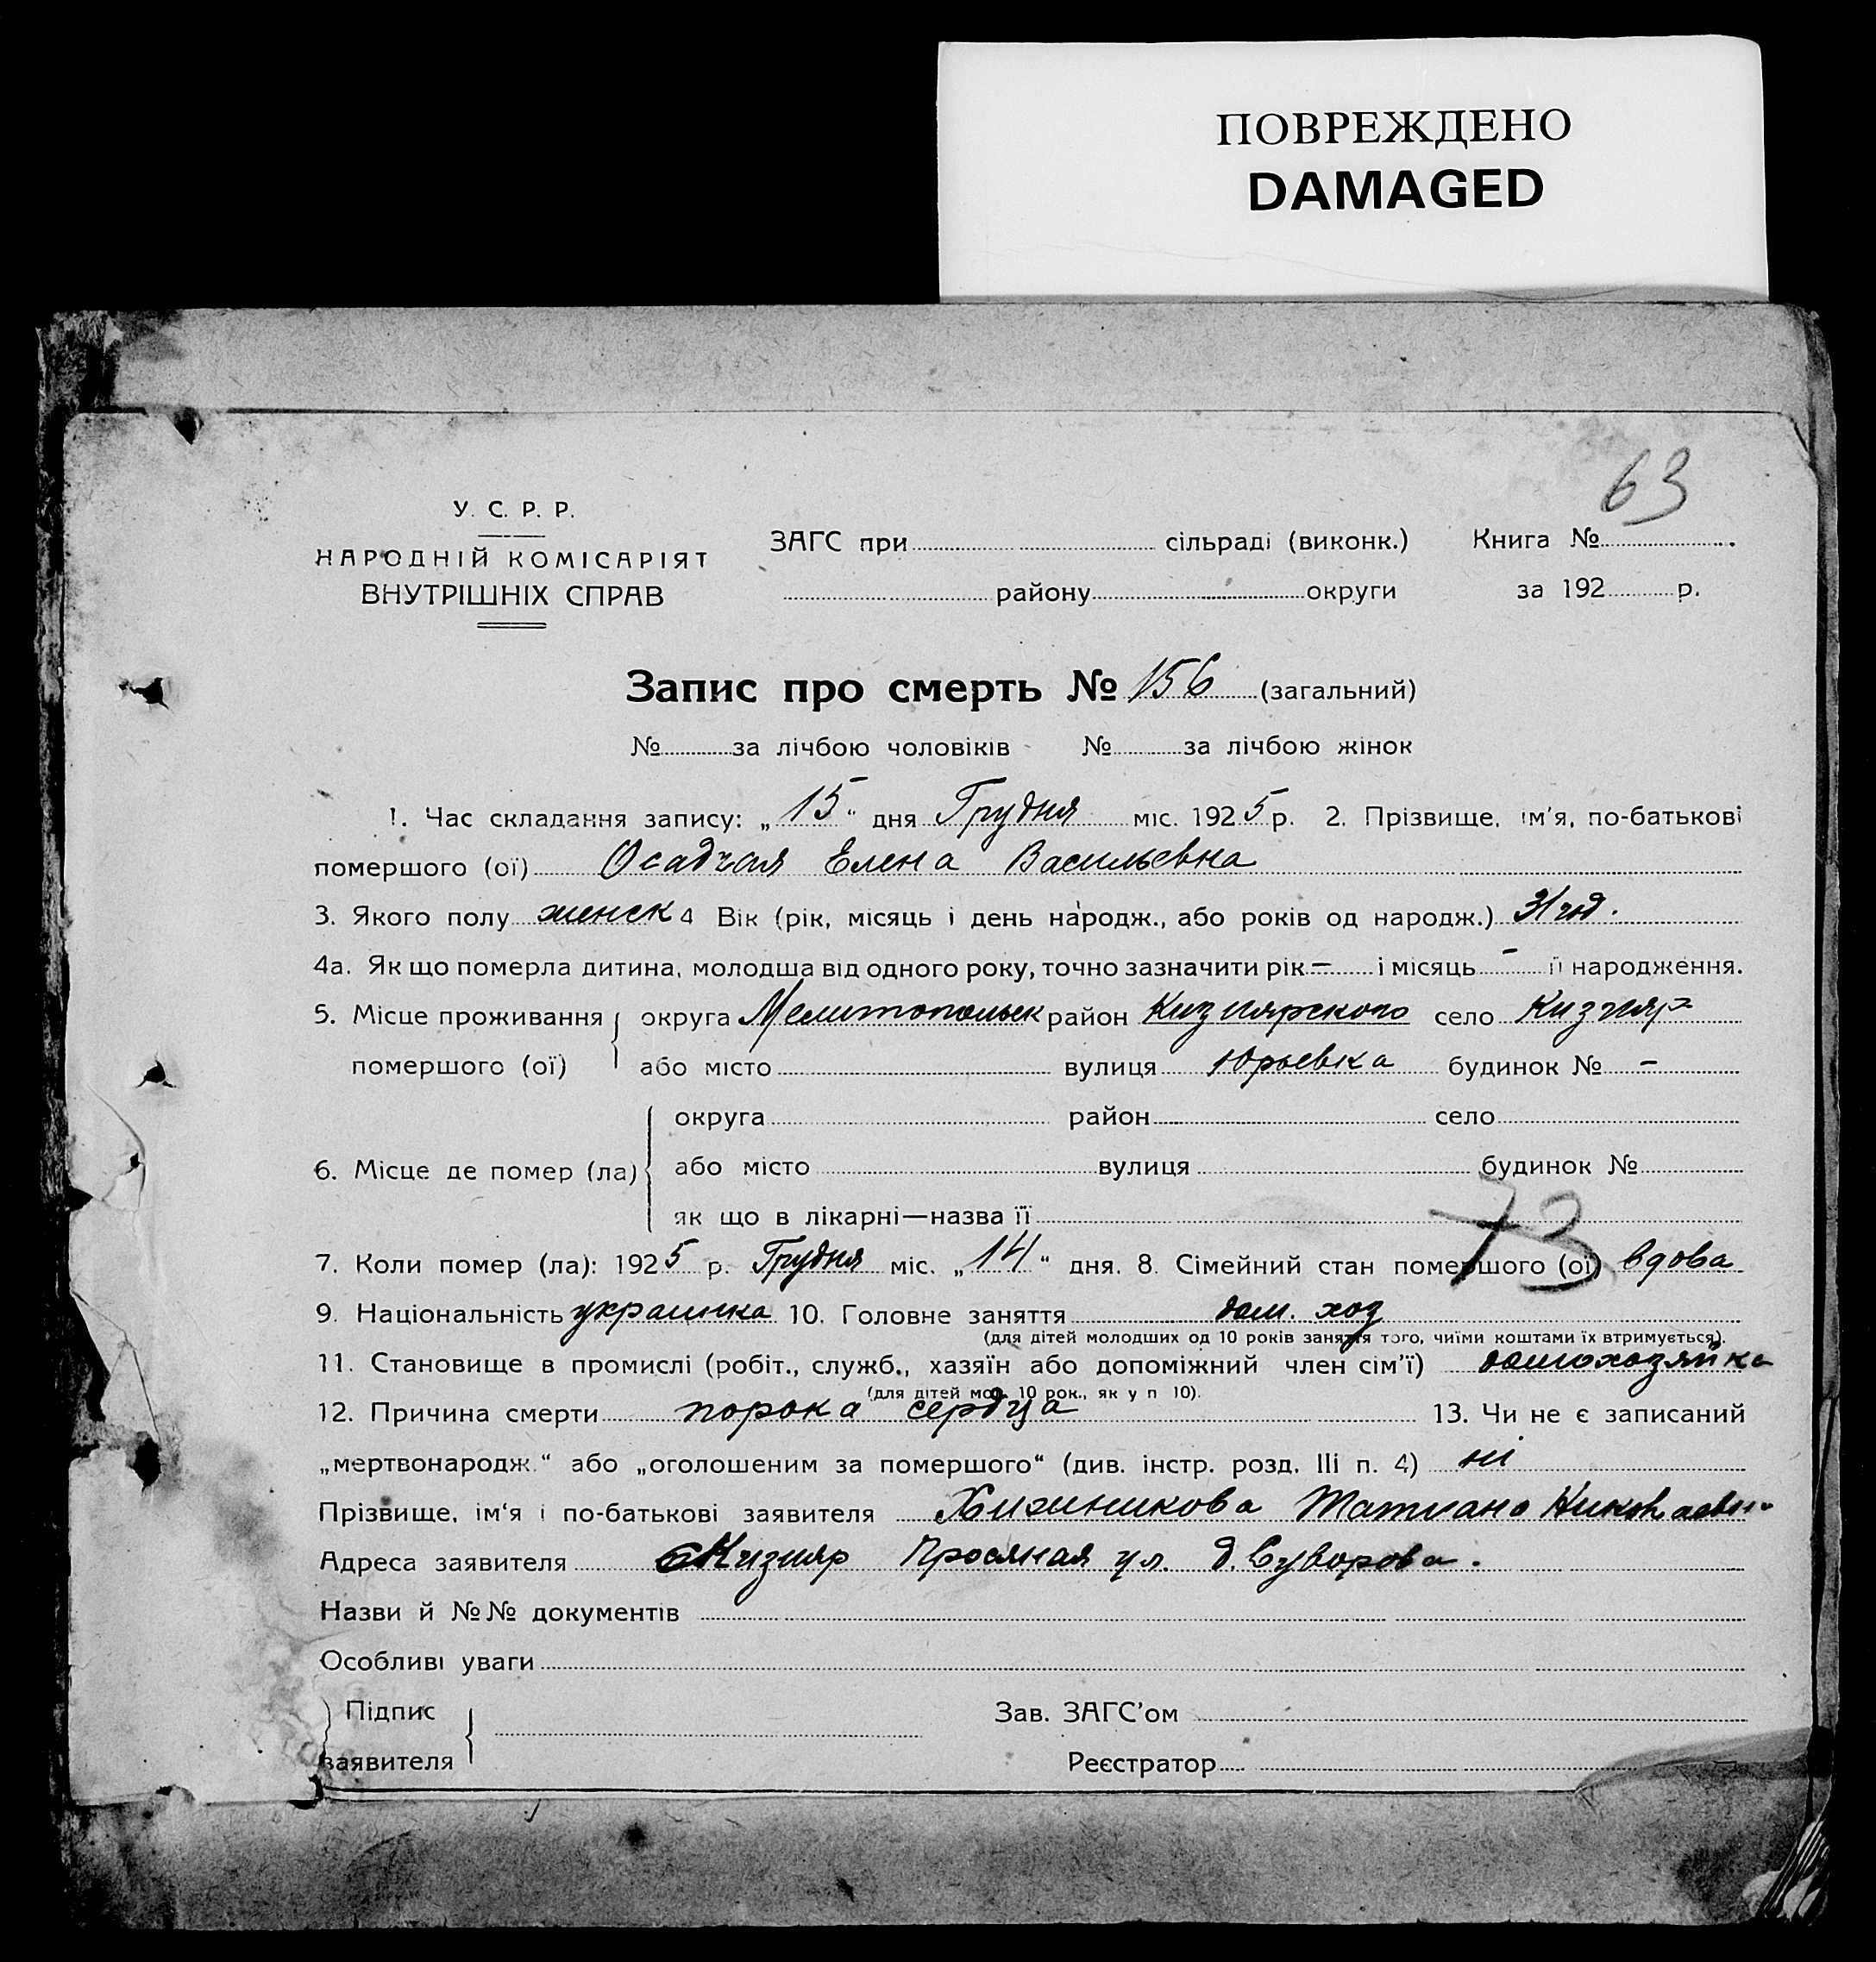 ПОВРЕЖДЕНО
DAMAGED
63
У. С. Р. Р.
НАРОДНІЙ КОМІСАРІЯТ
ВНУТРІШНІХ СПРАВ
ЗАГС при сільраді (виконк.) Книга №
району округи за 192 р.
Запис про смерть № 156 (загальний)
№ за лічбою чоловіків № за лічбою жінок
1. Час складання запису: „15“ дня Грудня міс. 1925 р. 2. Прізвище, ім'я, по-батькові
помершого (ої) Осадчая Елена Васильевна
3. Якого полу женск 4 Вік (рік, місяць і день народж., або років од народж.) 31 год.
4а. Як що померла дитина, молодша від одного року, точно зазначити рік – і місяць – її народження.
5. Місце проживання округа Мелитопольск район Кизиярского село Кизияр
помершого (ої) або місто вулиця Юрьевка будинок № –
округа район село
6. Місце де помер (ла) або місто вулиця будинок №
як що в лікарні—назва її
73
7. Коли помер (ла): 1925 р. Грудня міс. „14“ дня. 8. Сімейний стан помершого (ої) вдова
9. Національність украинка 10. Головне заняття дом. хоз
(для дітей молодших од 10 років заняття того, чиїми коштами їх втримується).
11. Становище в промислі (робіт., служб., хазяїн або допоміжний член сім'ї) домохозяйка
(для дітей мол. 10 рок., як у п 10).
12. Причина смерти порока сердца 13. Чи не є записаний
„мертвонародж.“ або „оголошеним за помершого“ (див. інстр. розд. III п. 4) ні
Прізвище, ім'я і по-батькові заявителя Татиана
Адреса заявителя Кизияр ул. д. Суворова.
Назви й №№ документів
Особливі уваги
Підпис Зав. ЗАГС'ом
заявителя Реєстратор